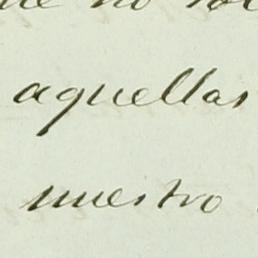 no
aquellas
nuestro